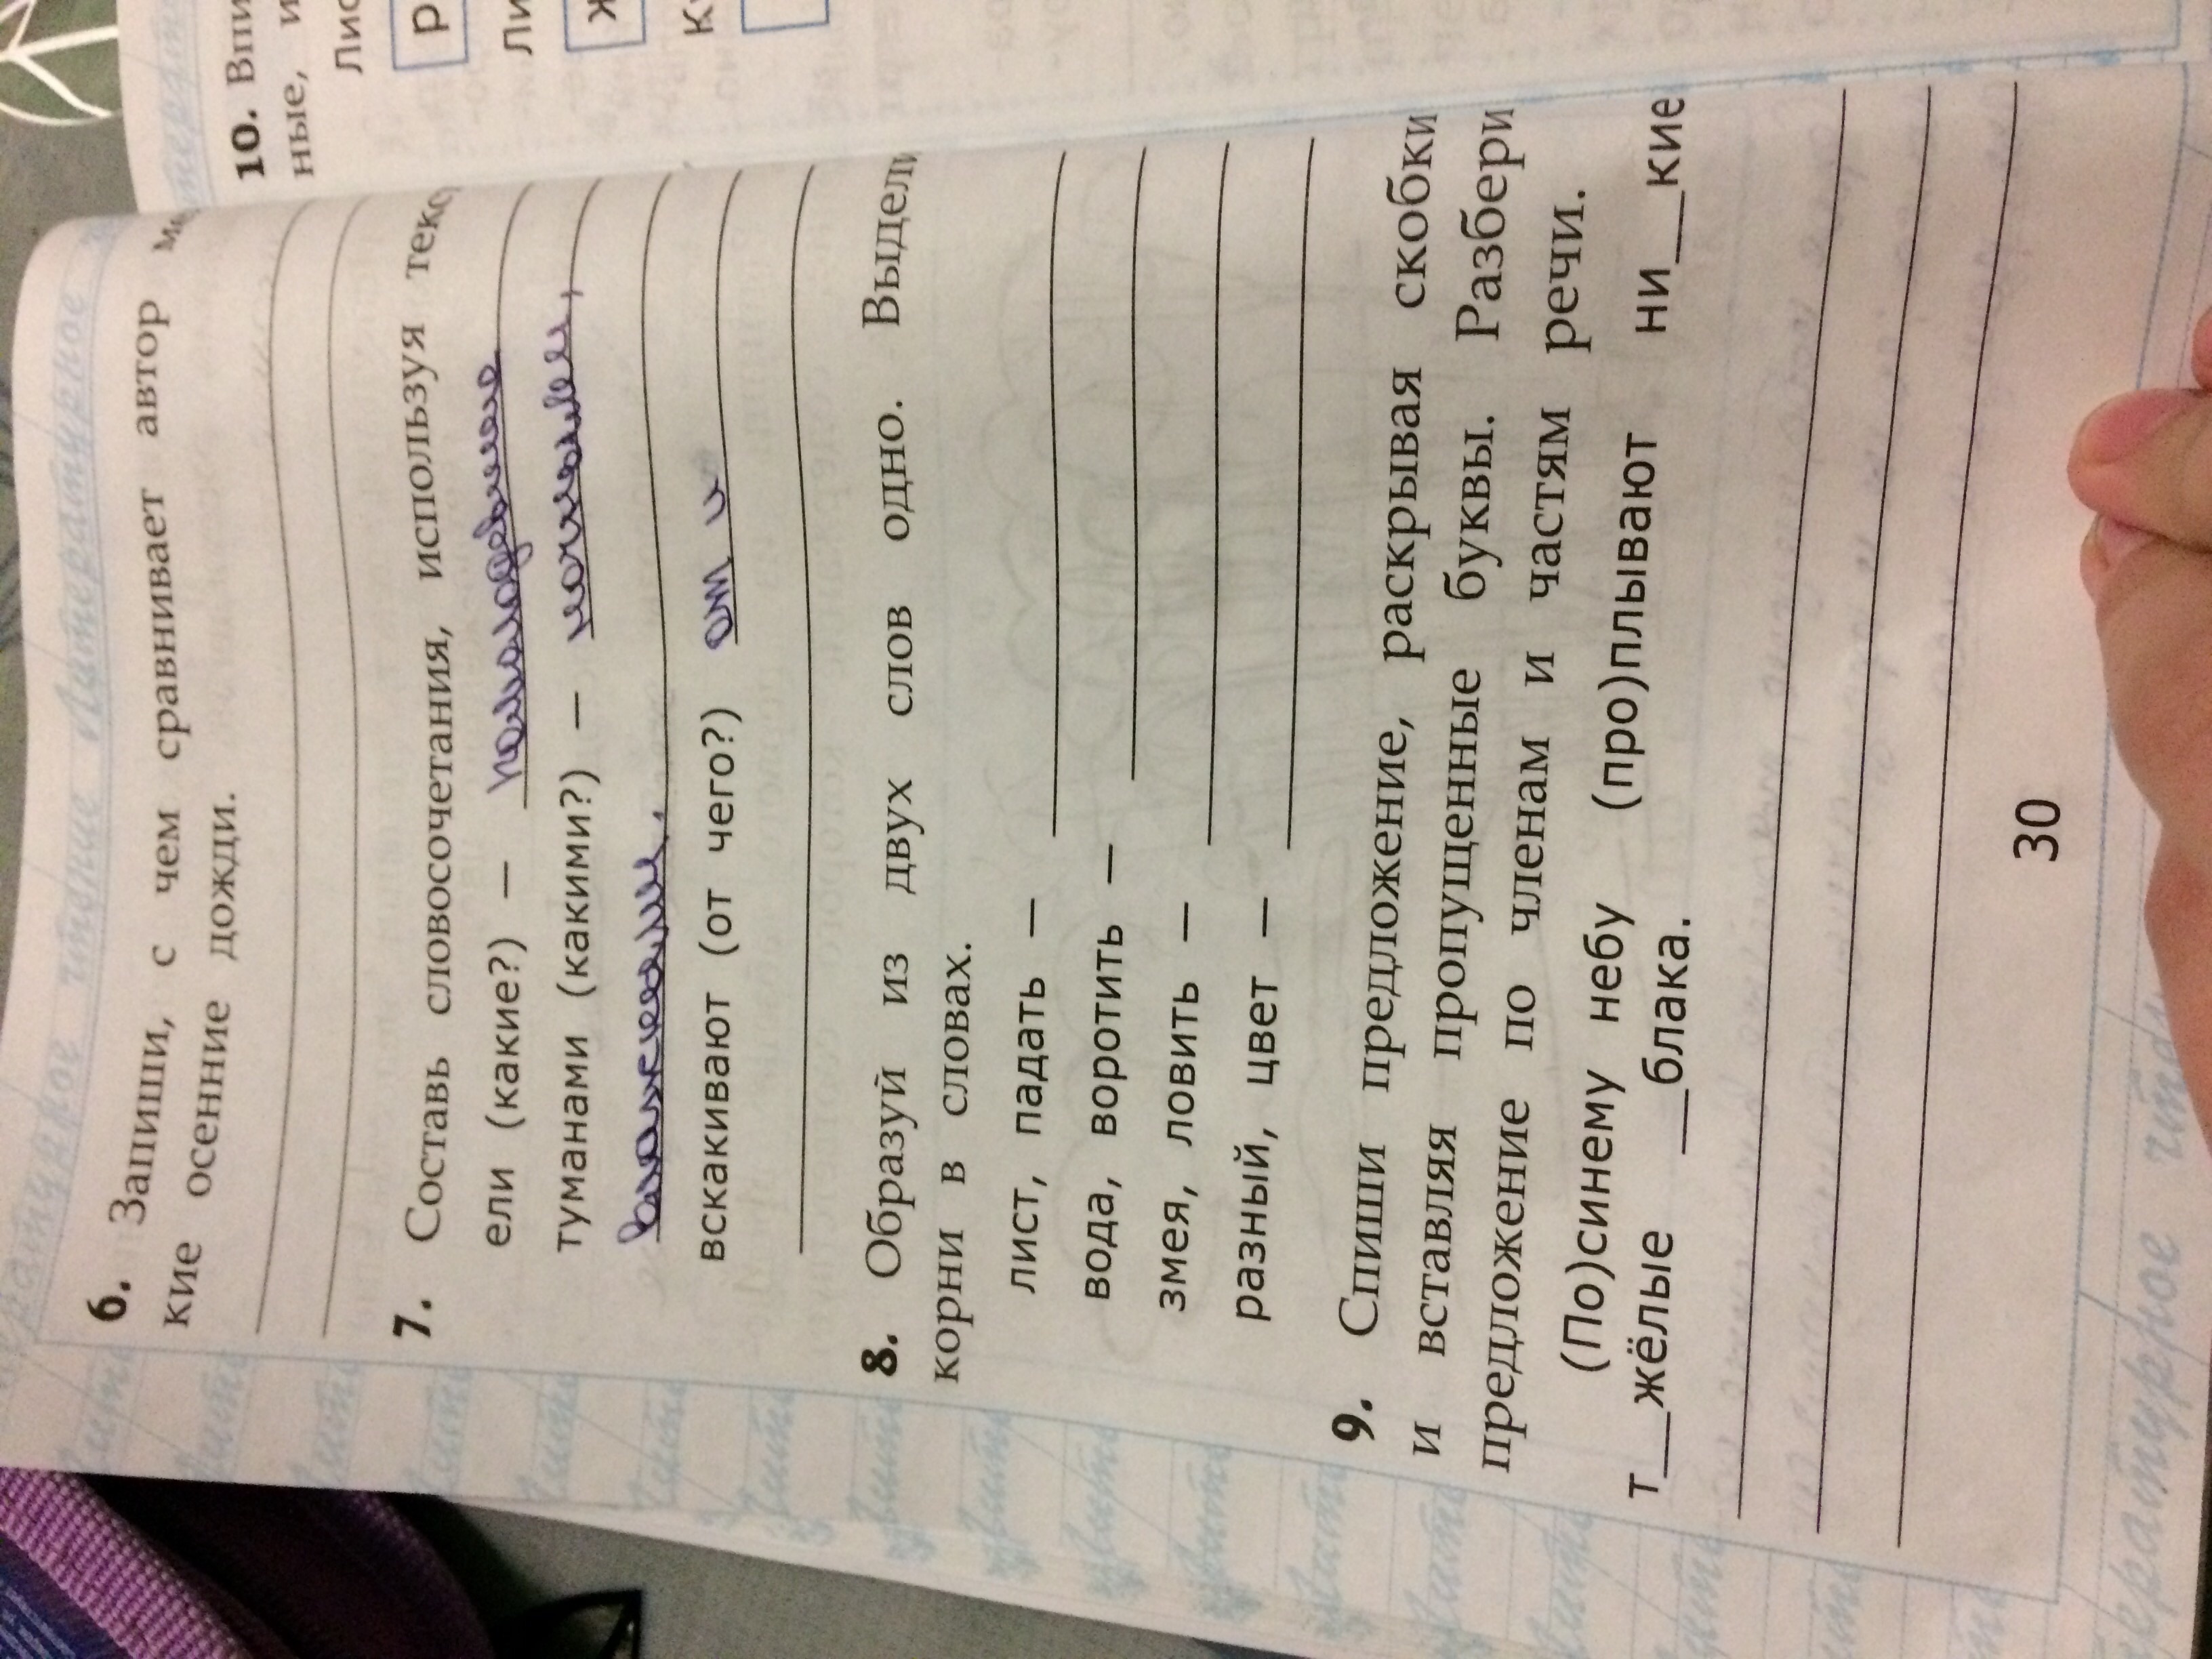 6. Запиши, с чем сравнивает автор
кие осенние дожди.
7. Составь словосочетания, используя
ели (какие?) —
туманами (какими?) — ночными,
влажными.
вскакивают (от чего?) от
8. Образуй из двух слов одно. Выдели
корни в словах.
лист, падать —
вода, воротить —
змея, ловить —
разный, цвет —
9. Спиши предложение, раскрывая скобки
и вставляя пропущенные буквы. Разбери
предложение по членам и частям речи.
(По)синему небу (про)плывают ни__кие
т__жёлые __блака.
30
10.
ные, и
р
ж